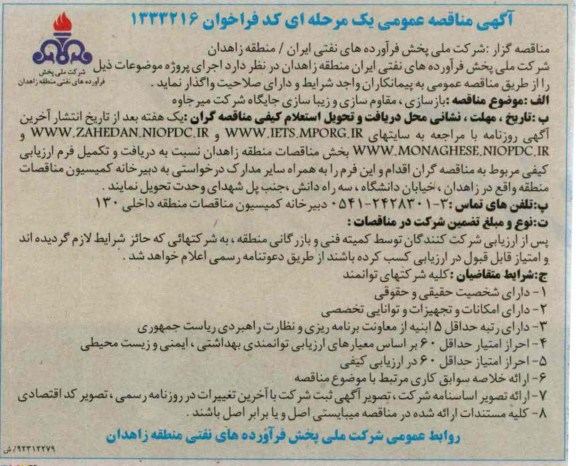 آگهی مناقصه عمومی یک مرحله ای کد فراخوان ۱۳۳۳۲۱۶
شرکت ملی پخش
فرآورده های نفتی منطقه زاهدان
مناقصه گزار :شرکت ملی پخش فرآورده های نفتی ایران / منطقه زاهدان
شرکت ملی پخش فرآورده های نفتی ایران منطقه زاهدان در نظر دارد اجرای پروژه موضوعات ذیل
را از طریق مناقصه عمومی به پیمانکاران واجد شرایط و دارای صلاحیت واگذار نماید .
الف :موضوع مناقصه :بازسازی ، مقاوم سازی و زیبا سازی جایگاه شرکت میرجاوه
ب :تاریخ ، مهلت ، نشانی محل دریافت و تحویل استعلام کیفی مناقصه گران :یک هفته بعد از تاریخ انتشار آخرین
آگهی روزنامه با مراجعه به سایتهای WWW.IETS.MPORG.IR و WWW.ZAHEDAN.NIOPDC.IR و
WWW.MONAGHESE.NIOPDC.IR بخش مناقصات منطقه زاهدان نسبت به دریافت و تکمیل فرم ارزیابی
کیفی مربوط به مناقصه گران اقدام و این فرم را به همراه سایر مدارک درخواستی به دبیرخانه کمیسیون مناقصات
منطقه واقع در زاهدان ،خیابان دانشگاه ، سه راه دانش ،جنب پل شهدای وحدت تحویل نمایند .
پ:تلفن های تماس :۳-۲۴۲۸۳۰۱-۰۵۴۱ دبیرخانه کمیسیون مناقصات منطقه داخلی ۱۳۰
ت:نوع و مبلغ تضمین شرکت در مناقصات :
پس از ارزیابی شرکت کنندگان توسط کمیته فنی و بازرگانی منطقه ، به شرکتهائی که حائز شرایط لازم گردیده اند
و امتیاز قابل قبول در ارزیابی کسب کرده باشند از طریق دعوتنامه رسمی اعلام خواهد شد .
ج:شرایط متقاضیان :کلیه شرکتهای توانمند
۱- دارای شخصیت حقیقی و حقوقی
۲- دارای امکانات و تجهیزات و توانایی تخصصی
۳- دارای رتبه حداقل ۵ ابنیه از معاونت برنامه ریزی و نظارت راهبردی ریاست جمهوری
۴- احراز امتیاز حداقل ۶۰ بر اساس معیارهای ارزیابی توانمندی بهداشتی ، ایمنی و زیست محیطی
۵- احراز امتیاز حداقل ۶۰ در ارزیابی کیفی
۶- ارائه خلاصه سوابق کاری مرتبط با موضوع مناقصه
۷- ارائه تصویر اساسنامه شرکت ، تصویر آگهی ثبت شرکت با آخرین تغییرات در روزنامه رسمی ، تصویر کد اقتصادی
۸- کلیه مستندات ارائه شده در مناقصه میبایستی اصل و یا برابر اصل باشند .
روابط عمومی شرکت ملی پخش فرآورده های نفتی منطقه زاهدان
۹۲۳۱۲۲۷۹/ش